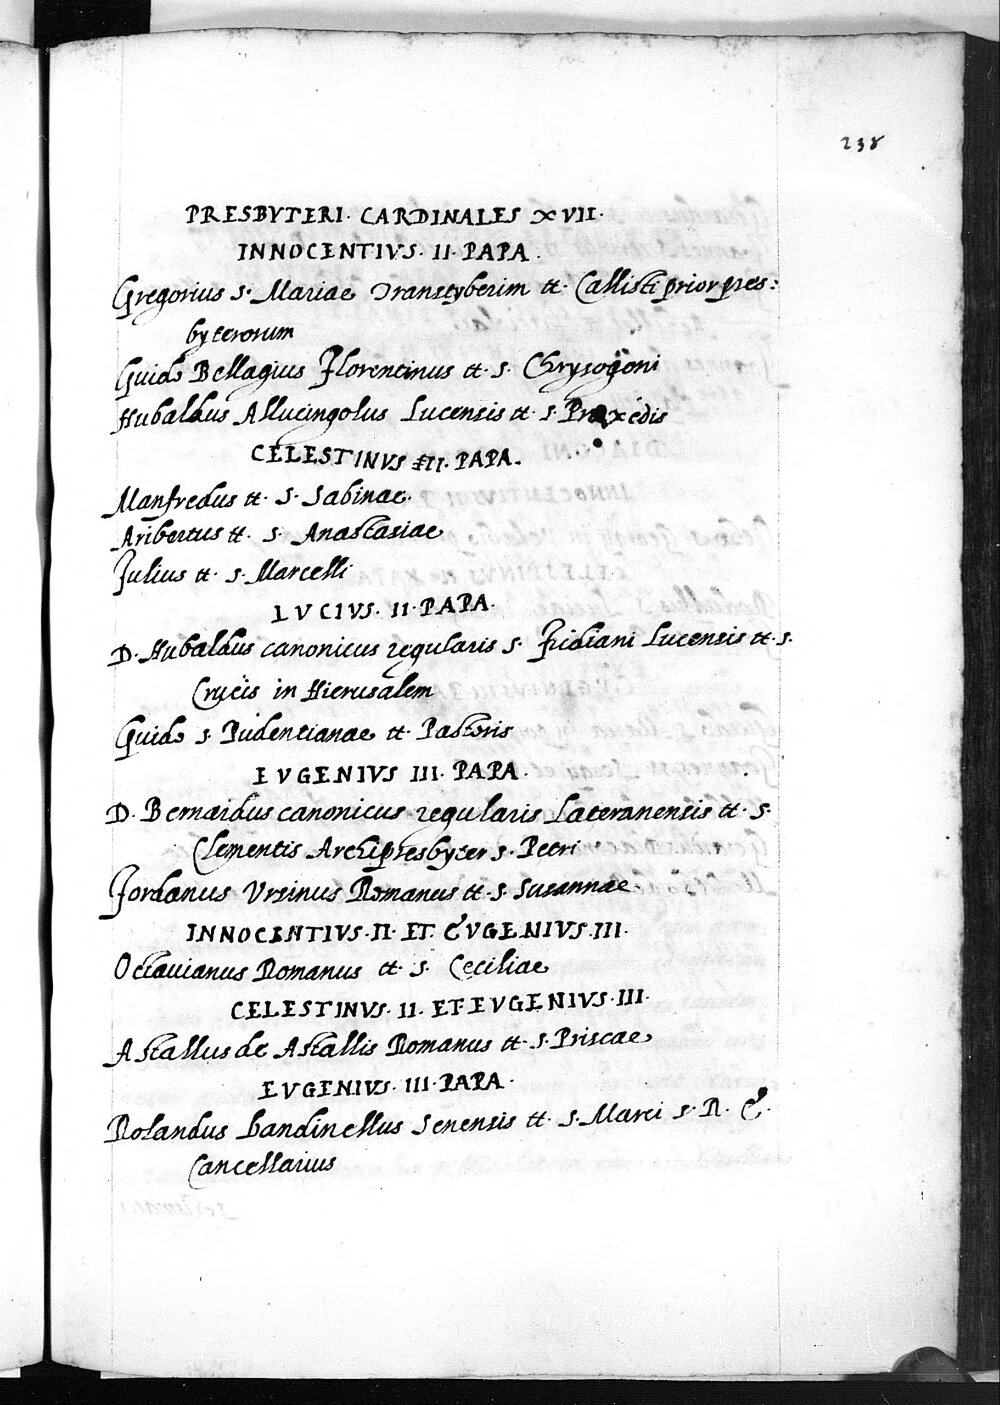 238
PRESBVTERI. CARDINALES XVII.
INNOCENTIVS. II. PAPA.
Gregorius s. Mariae Transtyberim tt. Callisti prior pres:
byterorum
Guido Bellagius Florentinus tt. s. Chrysogoni
Hubaldus Allucingolus Lucensis tt. s. Praxedis
CELESTINVS II. PAPA.
Manfredus tt. s. Sabinae.
Aribertus tt. s. Anastasiae
Julius tt. s. Marcelli
LVCIVS. II. PAPA.
D. Hubaldus canonicus regularis s. Fridiani Lucensis tt. s.
Crucis in Hierusalem
Guido s. Pudentianae tt. Pastoris
EVGENIVS III. PAPA.
D. Bernardus canonicus regularis Lateranensis tt. s.
Clementis Archipresbyter s. Petri
Jordanus Vrsinus Romanus tt. s. Susannae.
INNOCENTIVS. II. ET EVGENIVS. III.
Octauianus Romanus tt. s. Ceciliae
CELESTINVS. II. ET EVGENIVS. III.
Astallus de Astallis Romanus tt. s. Priscae
EVGENIVS. III. PAPA.
Rolandus bandinellus Senensis tt. s. Marci s. R. E.
Cancellarius